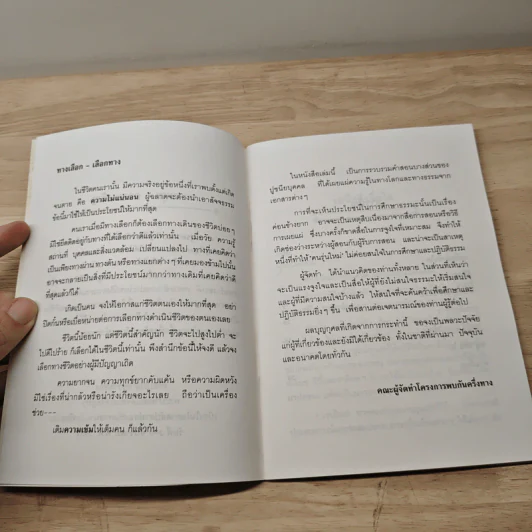 ทางเลือก - เลือกทาง
ในชีวิตคนเรานั้น มีความจริงอยู่ข้อหนึ่งที่เราพบตั้งแต่เกิด
จนตาย คือ ความไม่แน่นอน ผู้ฉลาดจะต้องนำเอาสัจจธรรม
ข้อนี้มาใช้ให้เป็นประโยชน์ให้มากที่สุด
คนเราเมื่อมีทางเลือกก็ต้องเลือกทางเดินของชีวิตบ่อย ๆ
มีชีวิตติดอยู่กับทางที่ได้เลือกว่าดีแล้วเท่านั้น ...เมื่อวัย ความรู้
สถานที่ บุคคลและสิ่งแวดล้อม เปลี่ยนแปลงไป ทางที่เคยคิดว่า
เป็นเพียงทางผ่าน ทางตัน หรือทางแยกต่าง ๆ ที่เคยมองข้ามไปนั้น
อาจจะกลายเป็นสิ่งที่มีประโยชน์มากกว่าทางเดิมที่เคยคิดว่าดี
ที่สุดแล้วก็ได้
เกิดเป็นคน จงให้โอกาสแก่ชีวิตตนเองให้มากที่สุด อย่า
ปิดกั้นหรือเบื่อหน่ายต่อการเลือกทางดำเนินชีวิตของตนเองเลย
ชีวิตนี้น้อยนัก แต่ชีวิตนี้สำคัญนัก ชีวิตจะไปสูงไปต่ำ จะ
ไปดีไปร้าย ก็เลือกได้ในชีวิตนี้เท่านั้น พึงสำนึกข้อนี้ให้จงดี แล้วจง
เลือกทางชีวิตอย่างผู้มีปัญญาเถิด
ความยากจน ความทุกข์ยากคับแค้น หรือความผิดหวัง
มิใช่เรื่องที่น่ากลัวหรือน่ารังเกียจอะไรเลย ถือว่าเป็นเครื่อง
ช่วย---
เติมความเข้มให้เต็มคน ก็แล้วกัน
ในหนังสือเล่มนี้ เป็นการรวบรวมคำสอนบางส่วนของ
ปูชนียบุคคล ที่ได้เผยแผ่ความรู้ในทางโลกและทางธรรมจาก
เอกสารต่าง ๆ
การที่จะเห็นประโยชน์ในการศึกษาธรรมะนั้นเป็นเรื่อง
ค่อนข้างยาก อาจจะเป็นเหตุสืบเนื่องมาจากสื่อการสอนหรือวิธี
การเผยแผ่ ซึ่งบางครั้งก็ขาดสื่อในการจูงใจที่เหมาะสม จึงทำให้
เกิดช่องว่างระหว่างผู้สอนกับผู้รับการสอน และน่าจะเป็นสาเหตุ
หนึ่งที่ทำให้ "คนรุ่นใหม่" ไม่ค่อยสนใจในการศึกษาและปฏิบัติธรรม
ผู้จัดทำ ได้นำแนวคิดของท่านทั้งหลาย ในส่วนที่เห็นว่า
จะเป็นแรงจูงใจและเป็นสื่อให้ผู้ที่ยังไม่สนใจธรรมะให้เริ่มสนใจ
และผู้ที่มีความสนใจบ้างแล้ว ให้สนใจที่จะค้นคว้าเพื่อศึกษาและ
ปฏิบัติธรรมยิ่ง ๆ ขึ้น เพื่อสานต่อเจตนารมณ์ของท่านผู้รู้ต่อไป
ผลบุญกุศลที่เกิดจากการกระทำนี้ ขอจงเป็นพลวะปัจจัย
แก่ผู้ที่เกี่ยวข้องและยังมิได้เกี่ยวข้อง ทั้งในชาติที่ผ่านมา ปัจจุบัน
และอนาคตโดยทั่วกัน
คณะผู้จัดทำโครงการพบกันครึ่งทาง